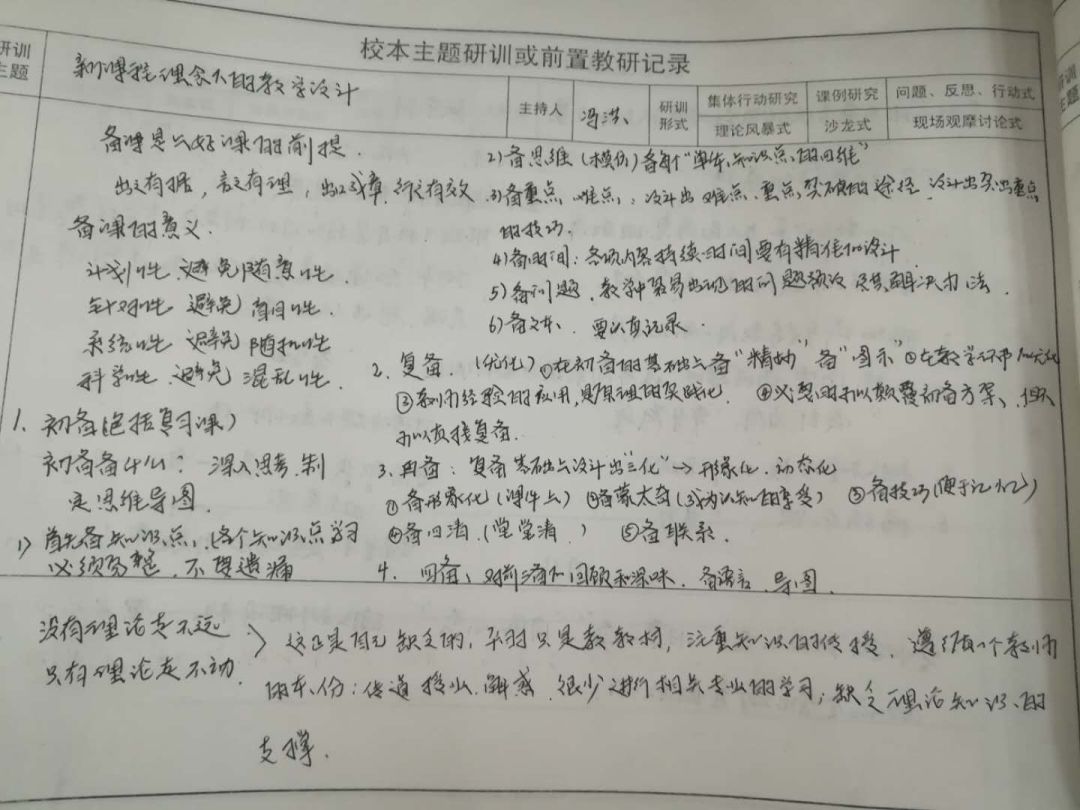 校本主题研训或前置教研记录
研训
主题
新课程理念下的教学设计
主持人
冯洪
研训
形式
集体行动研究
课例研究
问题、反思、行动式
理论风暴式
沙龙式
现场观摩讨论式
备课是上好课的前提.
出之有据,言之有理,出口成章.行之有效
备课的意义.
计划性 避免随意性.
针对性 避免盲目性.
系统性 避免随机性
科学性 避免混乱性.
1. 初备(包括复习课)
初备备4/4: 深入思考.制
定思维导图.
1) 首先备知识点,(各个知识点学习
必须完整,不要遗漏
2)备思维(模仿)备每个"单车.知识点的思维"
3)备重点、难点,设计出难点.重点.突破的途径.设计出突出重点
的技巧.
4)备时间:各项内容持续时间要有精准的设计
5)备问题.教学中容易出现的问题预设及其解决办法.
6)备文本、要认真记录
2. 复备.(优化)①在初备的基础上备"精妙"备"图示"②在教学环节
③教师经验的应用,是原理的实践化. ④必要时可以颠覆初备方案、
可以直接复备.
3. 再备:复备基础上设计出"三化"→形象化.动态化
①备形象化(课件上)②备蒙太奇(成为认知的享受) ③备技巧(便于记忆)
④备日清.(堂堂清) ⑤备联系.
4. 四备、对前三备的回顾和深味.备语言.导图.
没有理论走不远
只有理论走不动.
} 这正是自己缺乏的,平时只是教教材,注重知识的传授.遵循一个教师
的本份:传道授业.解惑.很少进行相关专业的学习;缺乏理论知识的
支撑.